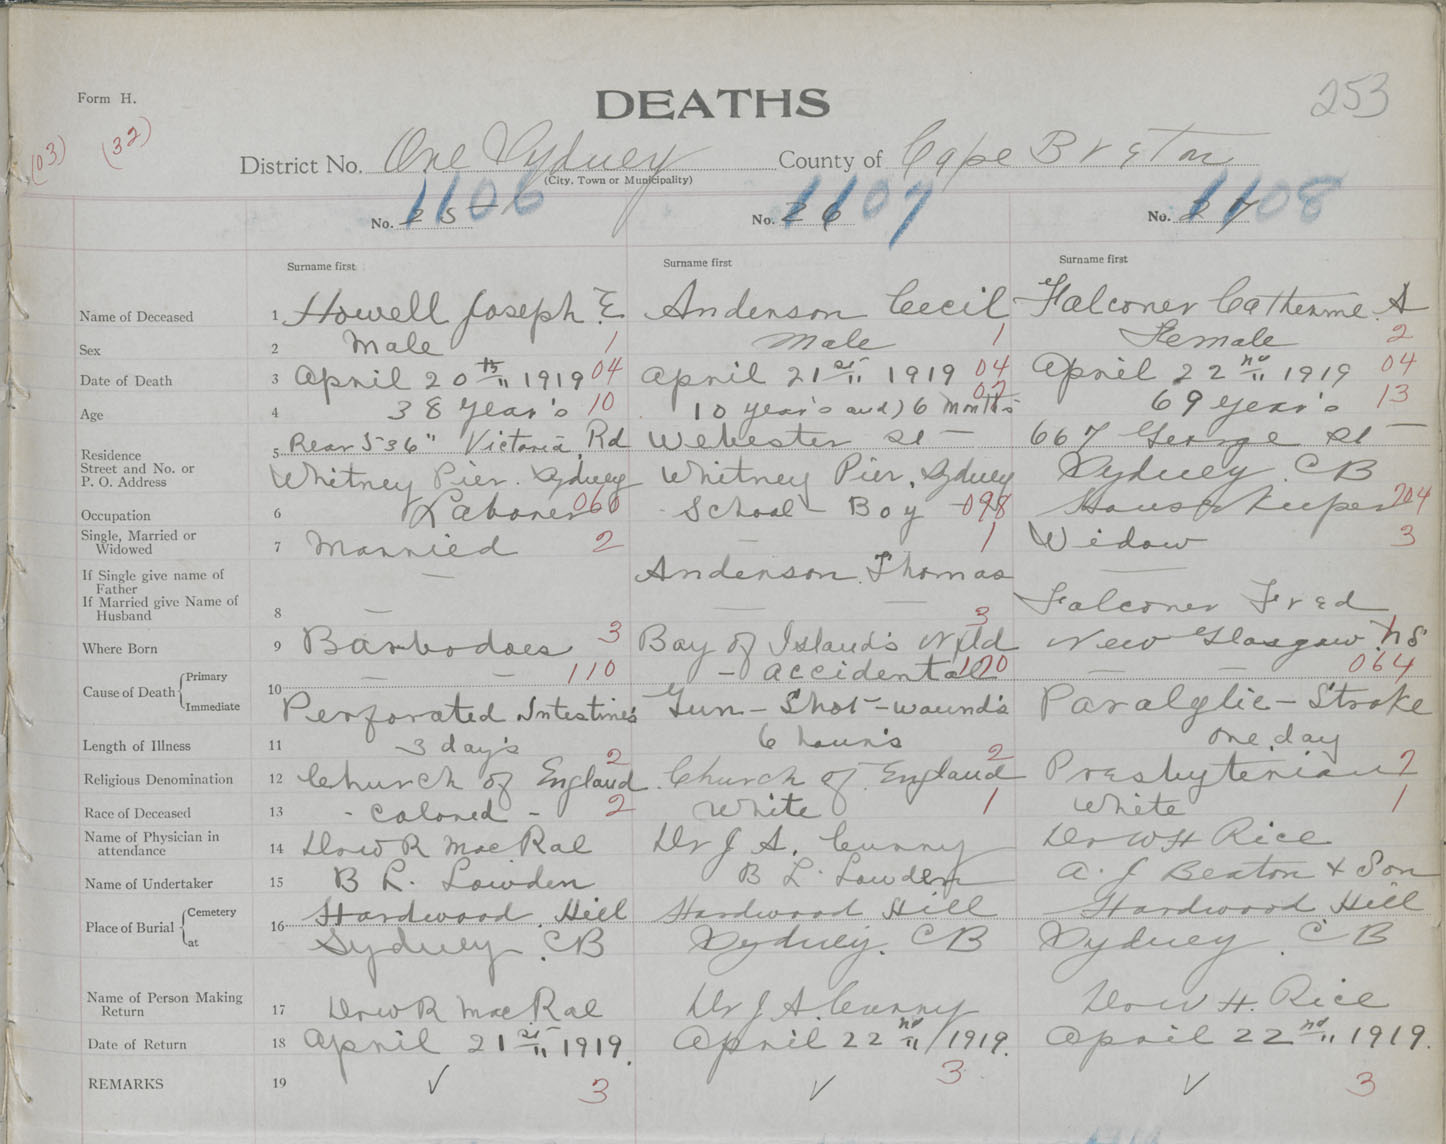 253
Form H.
DEATHS
(03) (32)
District No. One Sydney County of Cape Breton
(City, Town or Municipality)
1106 1107 1108
No. 25 No. 26 No. 27
Surname first Surname first Surname first
Name of Deceased 1 Howell Joseph E Anderson Cecil Falconer Catherine A
Sex 2 Male 1 Male 1 Female 2
Date of Death 3 April 20th 1919 04 April 21st 1919 04 April 22nd 1919 04
Age 4 38 Year's 10 10 year's and 6 months 02 69 Year's 13
Residence 5 Rear 536" Victoria Rd Webester St — 667 George St —
Street and No. or
P. O. Address Whitney Pier. Sydney Whitney Pier, Sydney Sydney CB
Occupation 6 Laborer 060 School Boy 098 House Keeper 204
Single, Married or
Widowed 7 Married 2 — 1 Widow 3
If Single give name of
Father — Anderson Thomas —
If Married give Name of
Husband 8 — — — Falconer Fred
Where Born 9 Barbodoes 3 Bay of Island's Nfld 3 New Glasgow N S 1
Cause of Death Primary 10 — — 110 - accidental 170 — — 064
Immediate Perforated Intestine's Gun-Shot-wound's Paralytic-Stroke
Length of Illness 11 3 day's 6 hour's one day
Religious Denomination 12 Church of England 2 Church of England 2 Presbyterian 7
Race of Deceased 13 - colored - 2 White 1 White 1
Name of Physician in
attendance 14 Dr W R MacRae Dr J A. Cunny Dr W H Rice
Name of Undertaker 15 B L. Lowden B L. Lowden A. J Beaton & Son
Place of Burial Cemetery 16 Hardwood Hill Hardwood Hill Hardwood Hill
at Sydney. CB Sydney. CB Sydney. CB
Name of Person Making
Return 17 Dr W R MacRae Dr J A. Cunny Dr W H. Rice
Date of Return 18 April 21st 1919. April 22nd 1919. April 22nd 1919.
REMARKS 19 ✓ 3 ✓ 3 ✓ 3